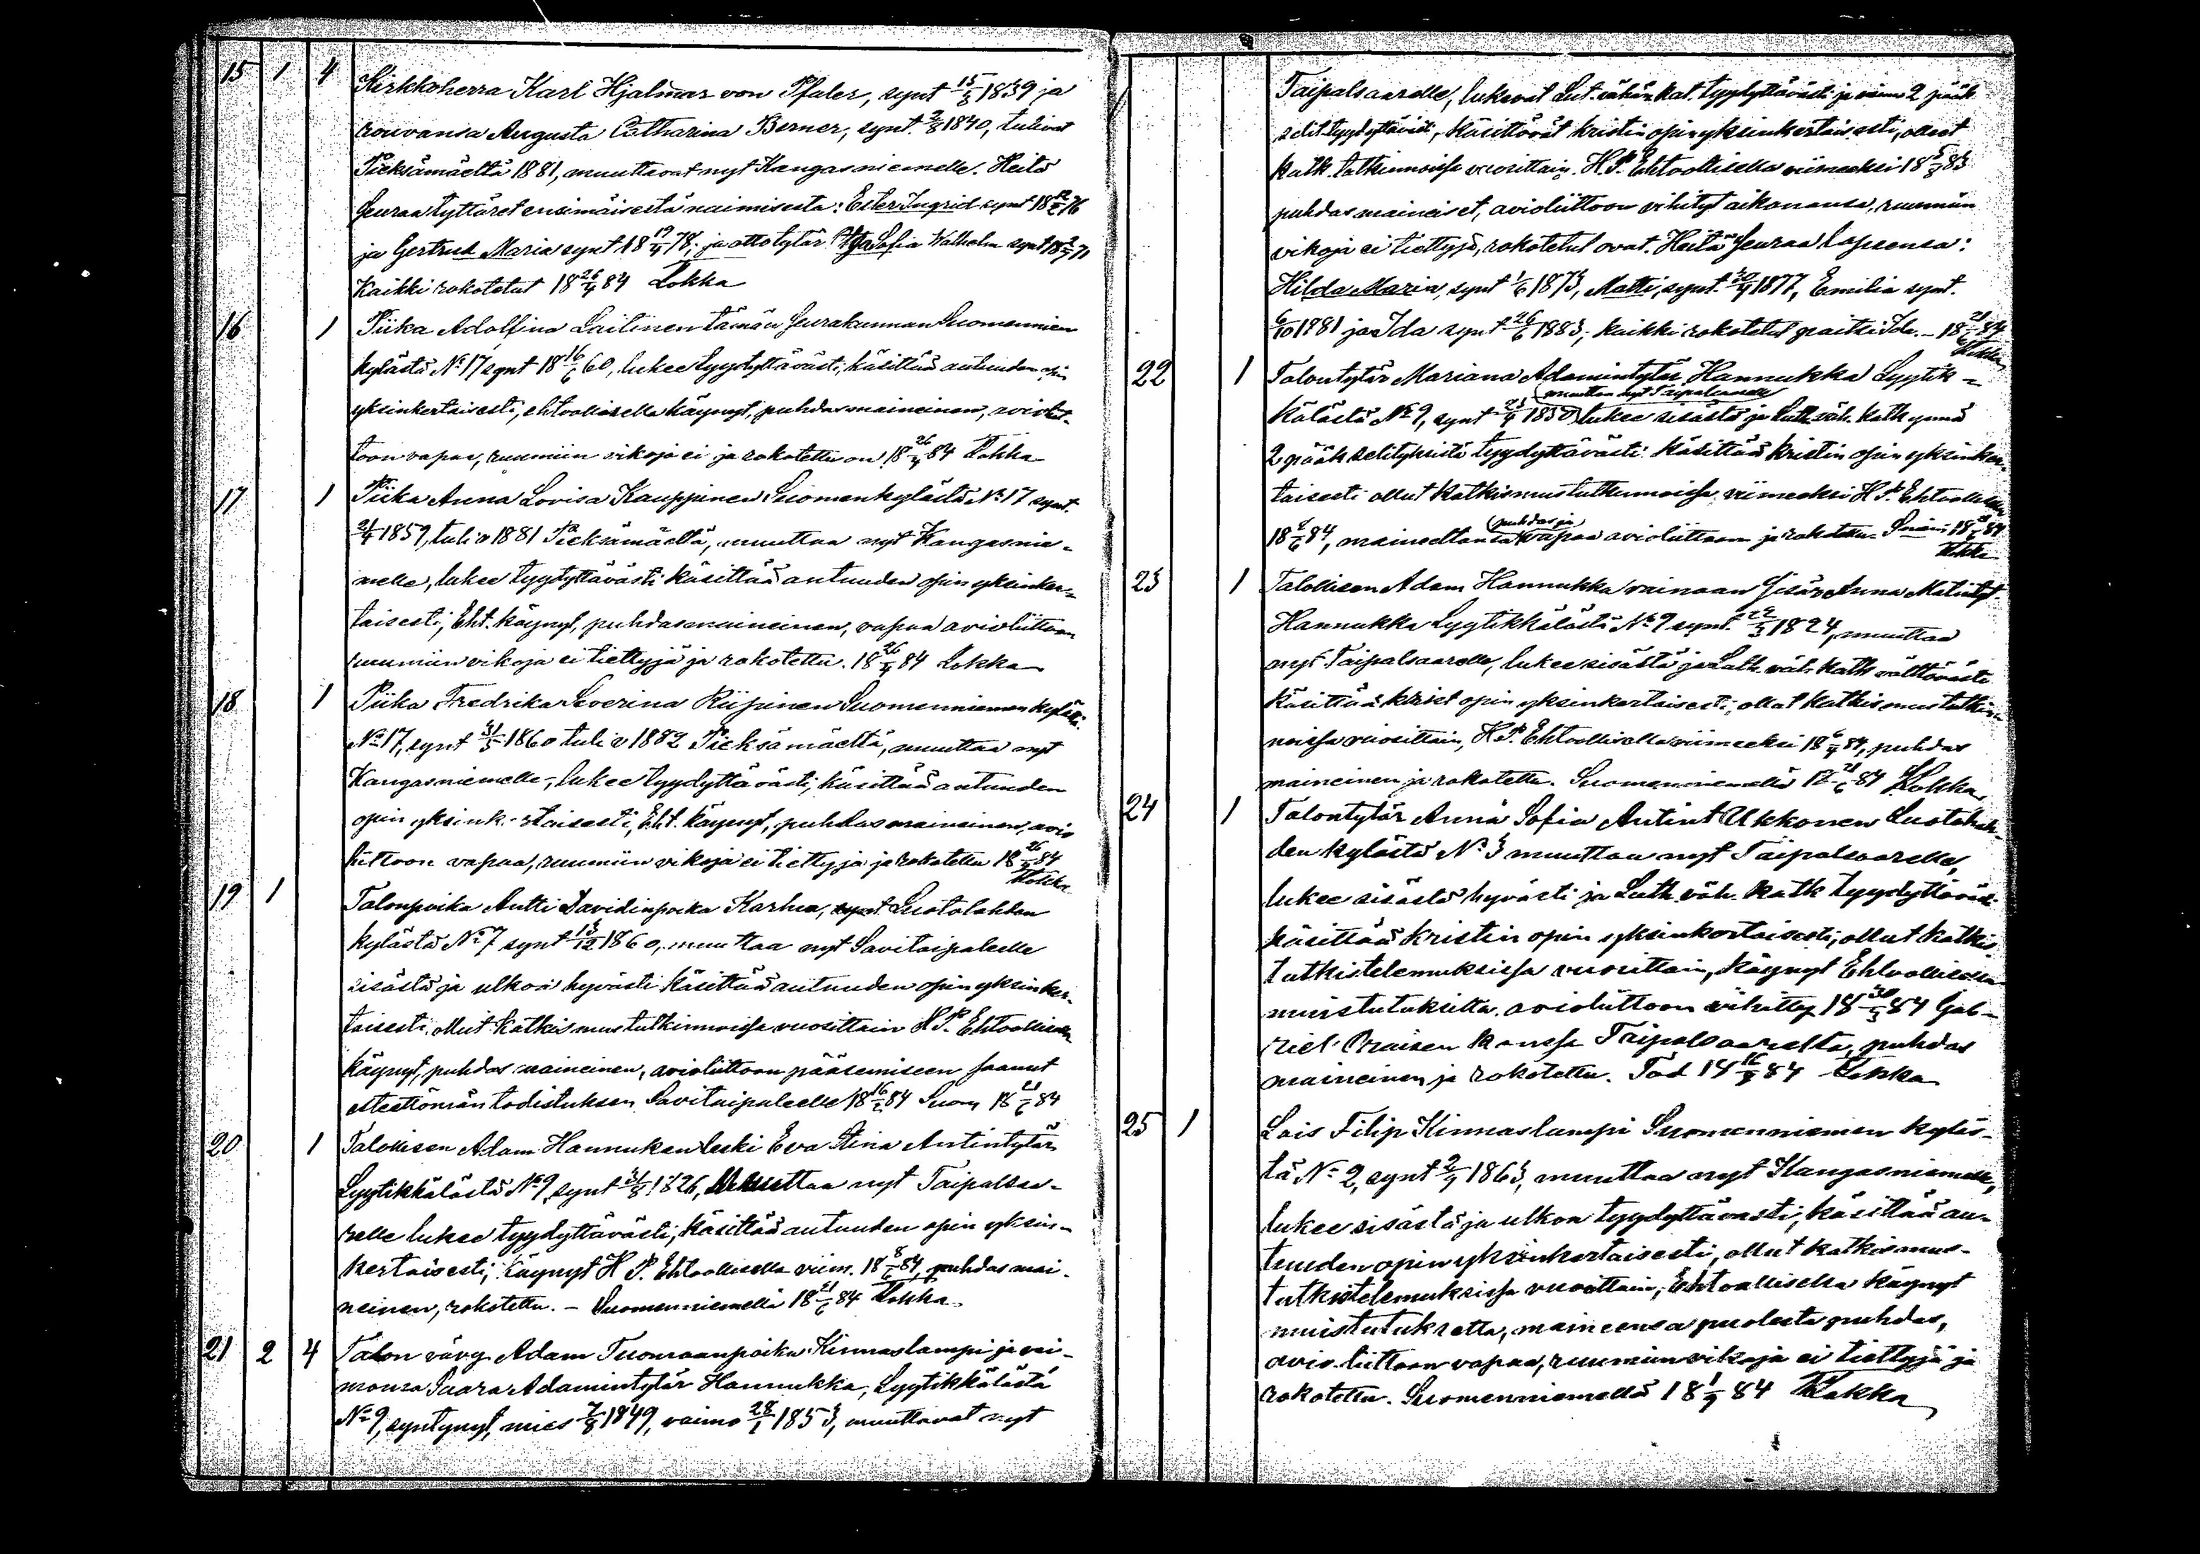 15 1 4 Kirkkoherra Karl Hjalmar von Pfaler, synt 15/8 1839 ja
rouvansa Augusta Catharina Berner, synt. 2/8 1840, tulivat
Pieksämäeltä 1881, muuttavat nyt Kangasniemelle. Heitä
seuraa tyttäret ensimäisestä naimisesta: Ester Ingrid synt
ja Gertrud Maria synt. 18 19/4 78, ja ottotytär Sofia
Kaikki rokotetut 18 26/4 84 Lokka
16 1 Piika Adolfina Laitinen tämän seurakunnan Suomenniemen
kylästä No 17 synt 18 16/6 60, lukee tyydyttävästi, käsittää autuuden opin
yksinkertaisesti, ehtoollisella käynyt, puhdasmaineinen, aviolit-
toon vapaa, ruumiin vikoja ei ja rokotettu on 18 26/4 84 Lokka
17 1 Piika Anna Lovisa Kauppinen Suomenkylästä No 17 synt.
1859, tuli v 1881 Pieksämäeltä, muuttaa nyt Kangasnie-
melle, lukee tyydyttävästi käsittää autuuden opin yksinker-
taisesti, Eht. käynyt, puhdasmaineinen, vapaa avioliittoon
ruumiin vikoja ei tiettyjä ja rokotettu. 18 26/4 84 Lokka
18 1 Piika Fredrika Severina Riipinen Suomenniemen kylästä
No 17, synt 31/5 1860 tuli v 1882 Pieksämäeltä, muuttaa nyt
Kangasniemelle, lukee tyydyttävästi, käsittää autuuden
opin yksinkertaisesti, Eht. käynyt, puhdasmaineinen, avio
liittoon vapaa, ruumiin vikoja ei tiettyjä ja rokotettu 18 26/4 84
Lokka
19 1 Talonpoika Antti Davidinpoika Karhu, synt. Luotolahden
kylästä No 7 synt 13/12 1860, muuttaa nyt Savitaipaleelle
sisästä ja ulkoa hyvästi käsittää autuuden opin yksinker-
taisesti, ollut katkismustutkinnoissa vuosittain H.P. Ehtoollisella
käynyt, puhdasmaineinen, avioliittoon pääsemiseen saanut
esteettömän todistuksen Savitaipaleelle 18 16/2 84 Suom 18 21/6 84
20 1 Talollisen Adam Hannukan leski Eva Stina Antintytär
Lyytikkälästä No 9, synt 1826, Muuttaa nyt Taipalsaa-
relle lukee tyydyttävästi, käsittää autuuden opin yksin-
kertaisesti, käynyt H P. Ehtoollisella viim. 18 8/6 84, puhdasmai-
neinen, rokotettu. - Suomenniemellä 18 21/6 84 Lokka
21 2 4 Talon vävy Adam Tuomaanpoika Kinnaslampi ja vai-
monsa Saara Adamintytär Hannukka, Lyytikkälästä
No 9, syntynyt, mies 7/8 1849, vaimo 28/1 1853, muuttavat nyt
Taipalsaarelle, lukevat Lut. vähän kat. tyydyttävästi ja viime 2 pääk
selit. tyydyttäväsi, käsittävät kristin opin yksinkertaisesti, olleet
katk. tutkinnoissa vuosittain. H.P. Ehtoollisella viimeeksi 18 83
puhdasmaineiset, avioliittoon vihityt aikanansa, ruumiin
vikoja ei tiettyjä, rokotetut ovat. Heitä seuraa lapsensa:
Hilda Maria, synt 1/6 1873, Matti, synt. 30/9 1877, Emilia synt.
6/10 1881 ja Ida synt 26/6 1883, kaikki rokotetut paitsi Ida. - 18 21/6 84
Lokka
22 1 Talontytär Mariana Adamintytär Hannukka Lyytik-
muuttaa nyt Taipalsaarelle
kälästä No 9, synt 1850 lukee sisästä ja Luth. väh. katk ynnä
2 pääk selityksistä tyydyttävästi käsittää kristin opin yksinker-
taisesti ollut katkismustutkinnoissa, viimeeksi H P. Ehtoollisella
puhdas ja
18 8/6 84, maineeltansa vapaa avioliittoon ja rokotettu. Snäin 18 21/6 84
Lokka
23 1 Talollisen Adam Hannukka vainaan sisär Anna Matintyt
Hannukka Lyytikkälästä No 9 synt. 22/3 1824, muuttaa
nyt Taipalsaarelle, lukee sisästä ja Luth. väh. katk välttävästi
käsittää krist opin yksinkertaisesti, ollut katkismustutkin-
noissa vuosittain, H.P. Ehtoollisella viimeeksi 18 84, puhdas
maineinen ja rokotettu. Suomenniemellä 18 21/6 84 Lokka
24 1 Talontytär Anna Sofia Antint Ukkonen Luotolah-
den kylästä No 3 muuttaa nyt Taipalsaarelle,
lukee sisästä hyvästi ja Luth. väh. katk tyydyttäväs-
käsittää kristin opin yksinkertaisesti, ollut katkis-
tutkistelemuksissa vuosittain, käynyt Ehtoollisella
muistutuksitta avioliittoon vihitty 18 30/3 84 Gab-
riel kanssa Taipalsaarelta, puhdas
maineinen ja rokotettu. Tod 18 84 Lokka
25 1 Lois Filip Kinnaslampi Suomenniemen kyläs-
tä No 2, synt 2/4 1863, muuttaa nyt Kangasniemelle,
lukee sisästä ja ulkoa tyydyttävästi, käsittää au-
tuuden opin yksinkertaisesti, ollut katkismus-
tutkistelemuksissa vuosittain, Ehtoollisella käynyt
muistutuksetta, maineensa puolesta puhdas,
avio liittoon vapaa, ruumiin vikoja ei tiettyjä ja
rokotettu. Suomenniemellä 18 1/9 84 Lokka